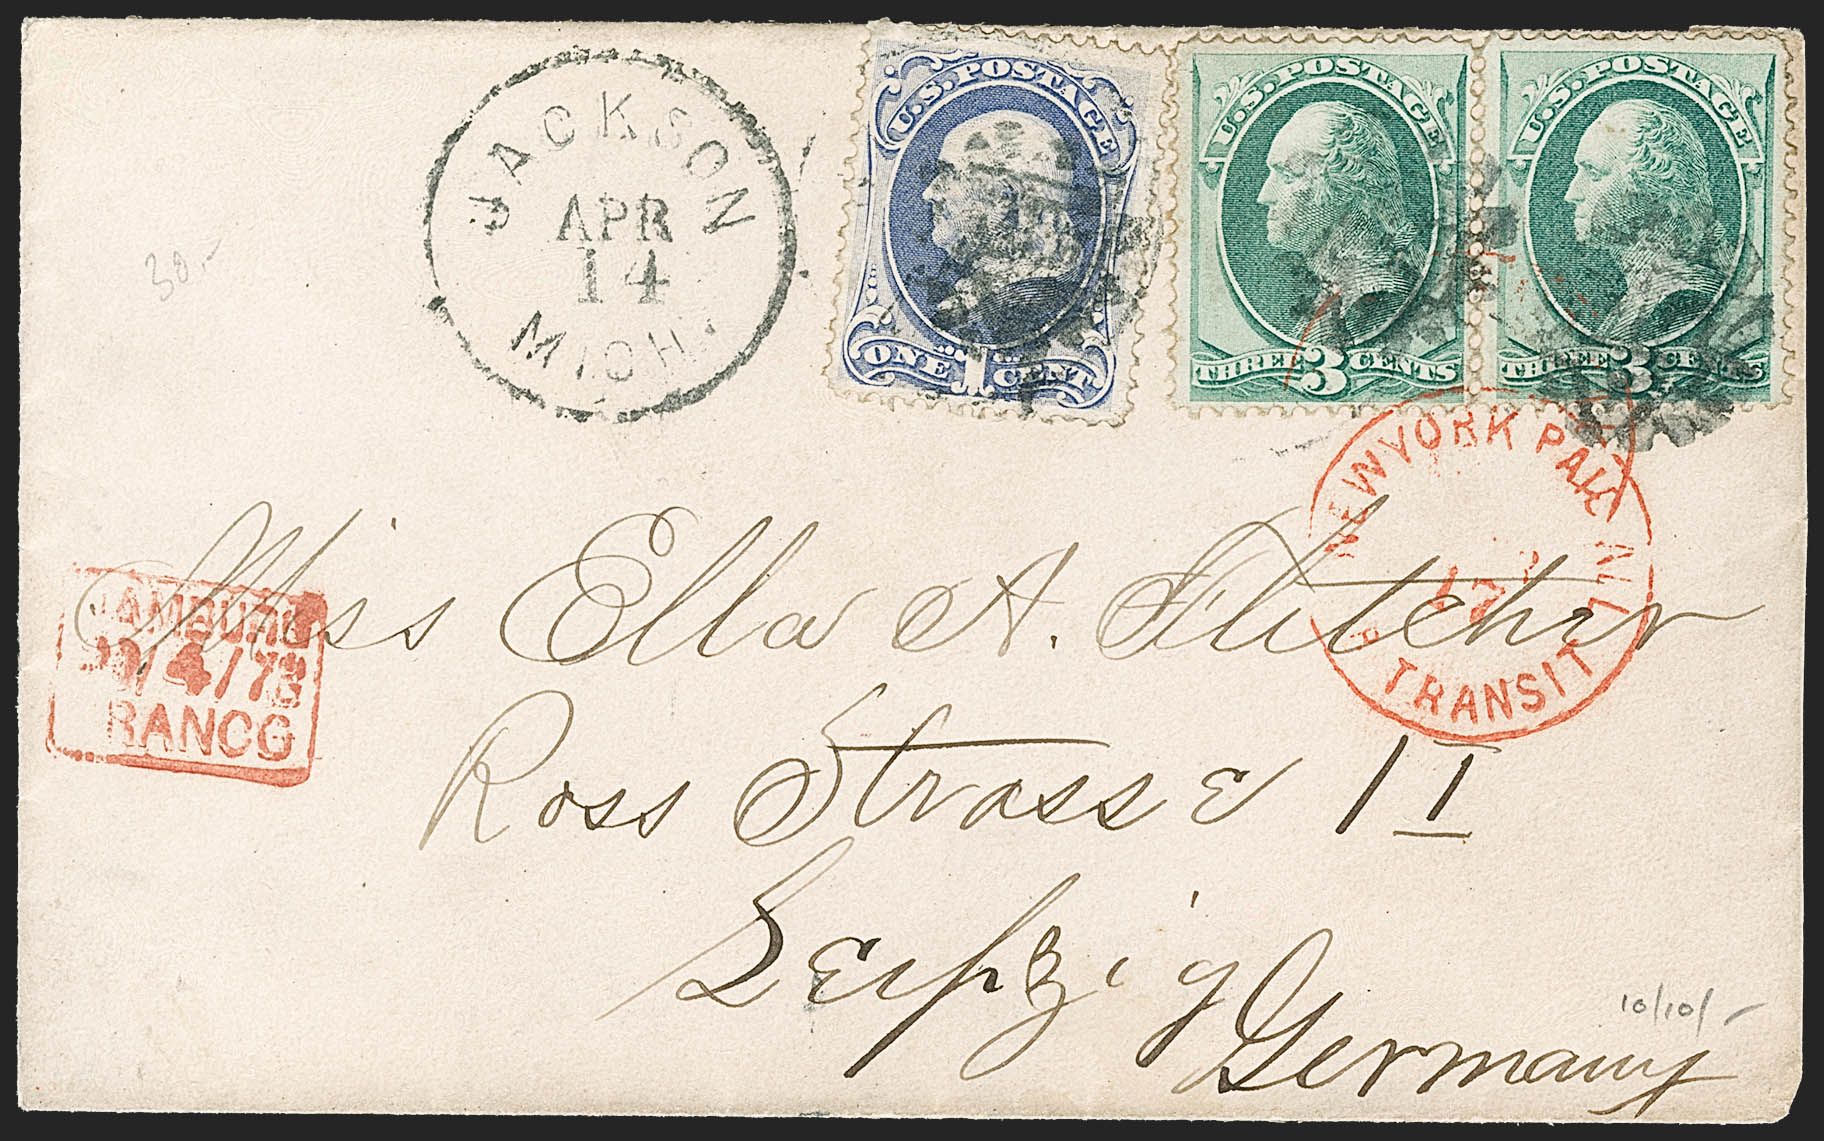 JACKSON
APR
14
MICH.
U.S. POSTAGE
ONE 1 CENT
U.S. POSTAGE
THREE 3 CENTS
U.S. POSTAGE
THREE 3 CENTS
30.-
NEW YORK PAID ALL
17
TRANSIT
Miss Ella A. Flitcher
Ross Strasse 11
Leipzig
Germany
4/73
RANCO
10/10/-